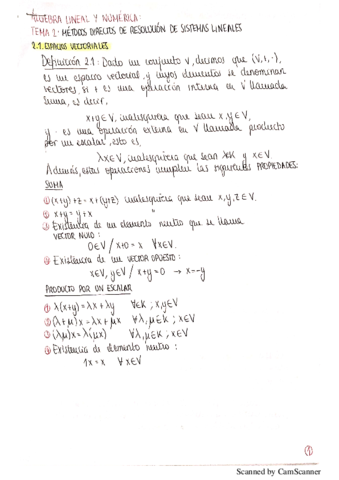 ÁLGEBRA LINEAL Y NUMÉRICA:
TEMA 2: MÉTODOS DIRECTOS DE RESOLUCIÓN DE SISTEMAS LINEALES
2.1. ESPACIOS VECTORIALES
Definición 2.1: Dado un conjunto V, decimos que (V,+,·),
es un espacio vectorial, y cuyos elementos se denominan
vectores, si + es una operación interna en V llamada
suma, es decir,
x+y∈V, cualesquiera que sean x,y∈V,
y · es una operación externa en V llamada producto
por un escalar, esto es,
λx∈V, cualesquiera que sean λ∈K y x∈V.
Además, estas operaciones cumplen las siguientes PROPIEDADES:
SUMA
① (x+y)+z = x+(y+z) cualesquiera que sean x,y,z∈V.
② x+y = y+x "
③ Existencia de un elemento neutro que se llama
VECTOR NULO:
0∈V / x+0 = x ∀x∈V.
④ Existencia de un VECTOR OPUESTO:
x∈V, y∈V / x+y=0 → x=-y
PRODUCTO POR UN ESCALAR
① λ(x+y)=λx+λy ∀λ∈K ; x,y∈V
② (λ+μ)x = λx+μx ∀λ,μ∈K ; x∈V
③ (λμ)x = λ(μx) ∀λ,μ∈K ; x∈V
④ Existencia de elemento neutro:
1x = x ∀x∈V
①
Scanned by CamScanner